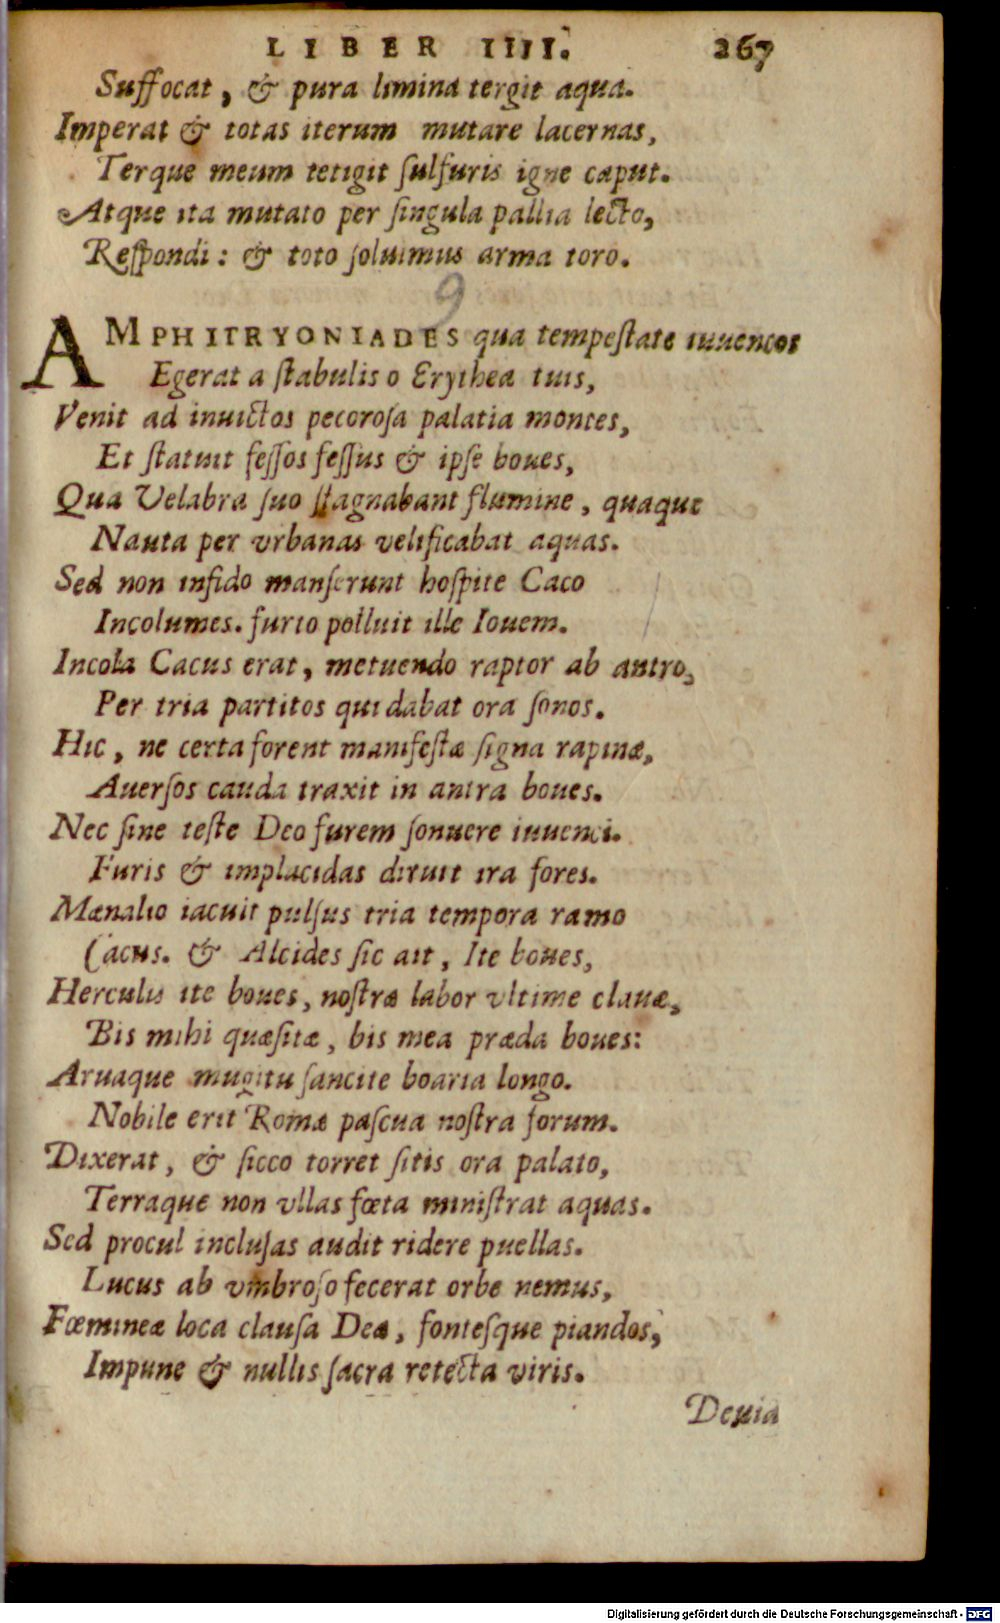 LIBER IIII. 267
Suffocat, & pura limina tergit aqua.
Imperat & totas iterum mutare lacernas,
Terque meum tetigit ſulfuris igne caput.
Atque ita mutato per ſingula pallia lecto,
Reſpondi: & toto ſoluimus arma toro.
9
AMPHITRYONIADES qua tempeſtate iuuencos
Egerat a ſtabulis o Erythea tuis,
Venit ad inuictos pecoroſa palatia montes,
Et ſtatuit feſſos feſſus & ipſe boues,
Qua Velabra ſuo ſtagnabant flumine, quaque
Nauta per vrbanas velificabat aquas.
Sed non infido manſerunt hoſpite Caco
Incolumes. furto polluit ille Iouem.
Incola Cacus erat, metuendo raptor ab antro,
Per tria partitos qui dabat ora ſonos.
Hic, ne certa forent manifeſtæ ſigna rapinæ,
Auerſos cauda traxit in antra boues.
Nec ſine teſte Deo furem ſonuere iuuenci.
Furis & implacidas diruit ira fores.
Mænalio iacuit pulſus tria tempora ramo
Cacus. & Alcides ſic ait, Ite boues,
Herculis ite boues, noſtræ labor vltime clauæ,
Bis mihi quæſitæ, bis mea præda boues:
Aruaque mugitu ſancite boaria longo.
Nobile erit Romæ paſcua noſtra forum.
Dixerat, & ſicco torret ſitis ora palato,
Terraque non vllas fœta miniſtrat aquas.
Sed procul incluſas audit ridere puellas.
Lucus ab vmbroſo fecerat orbe nemus,
Fœmineæ loca clauſa Deæ, fonteſque piandos,
Impune & nullis ſacra retecta viris.
Deuia
Digitalisierung gefördert durch die Deutsche Forschungsgemeinschaft - DFG